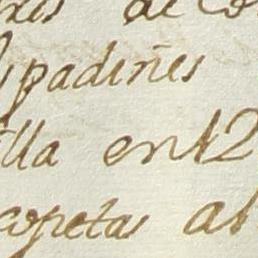 de Co
padines
lla en 12
copetas al